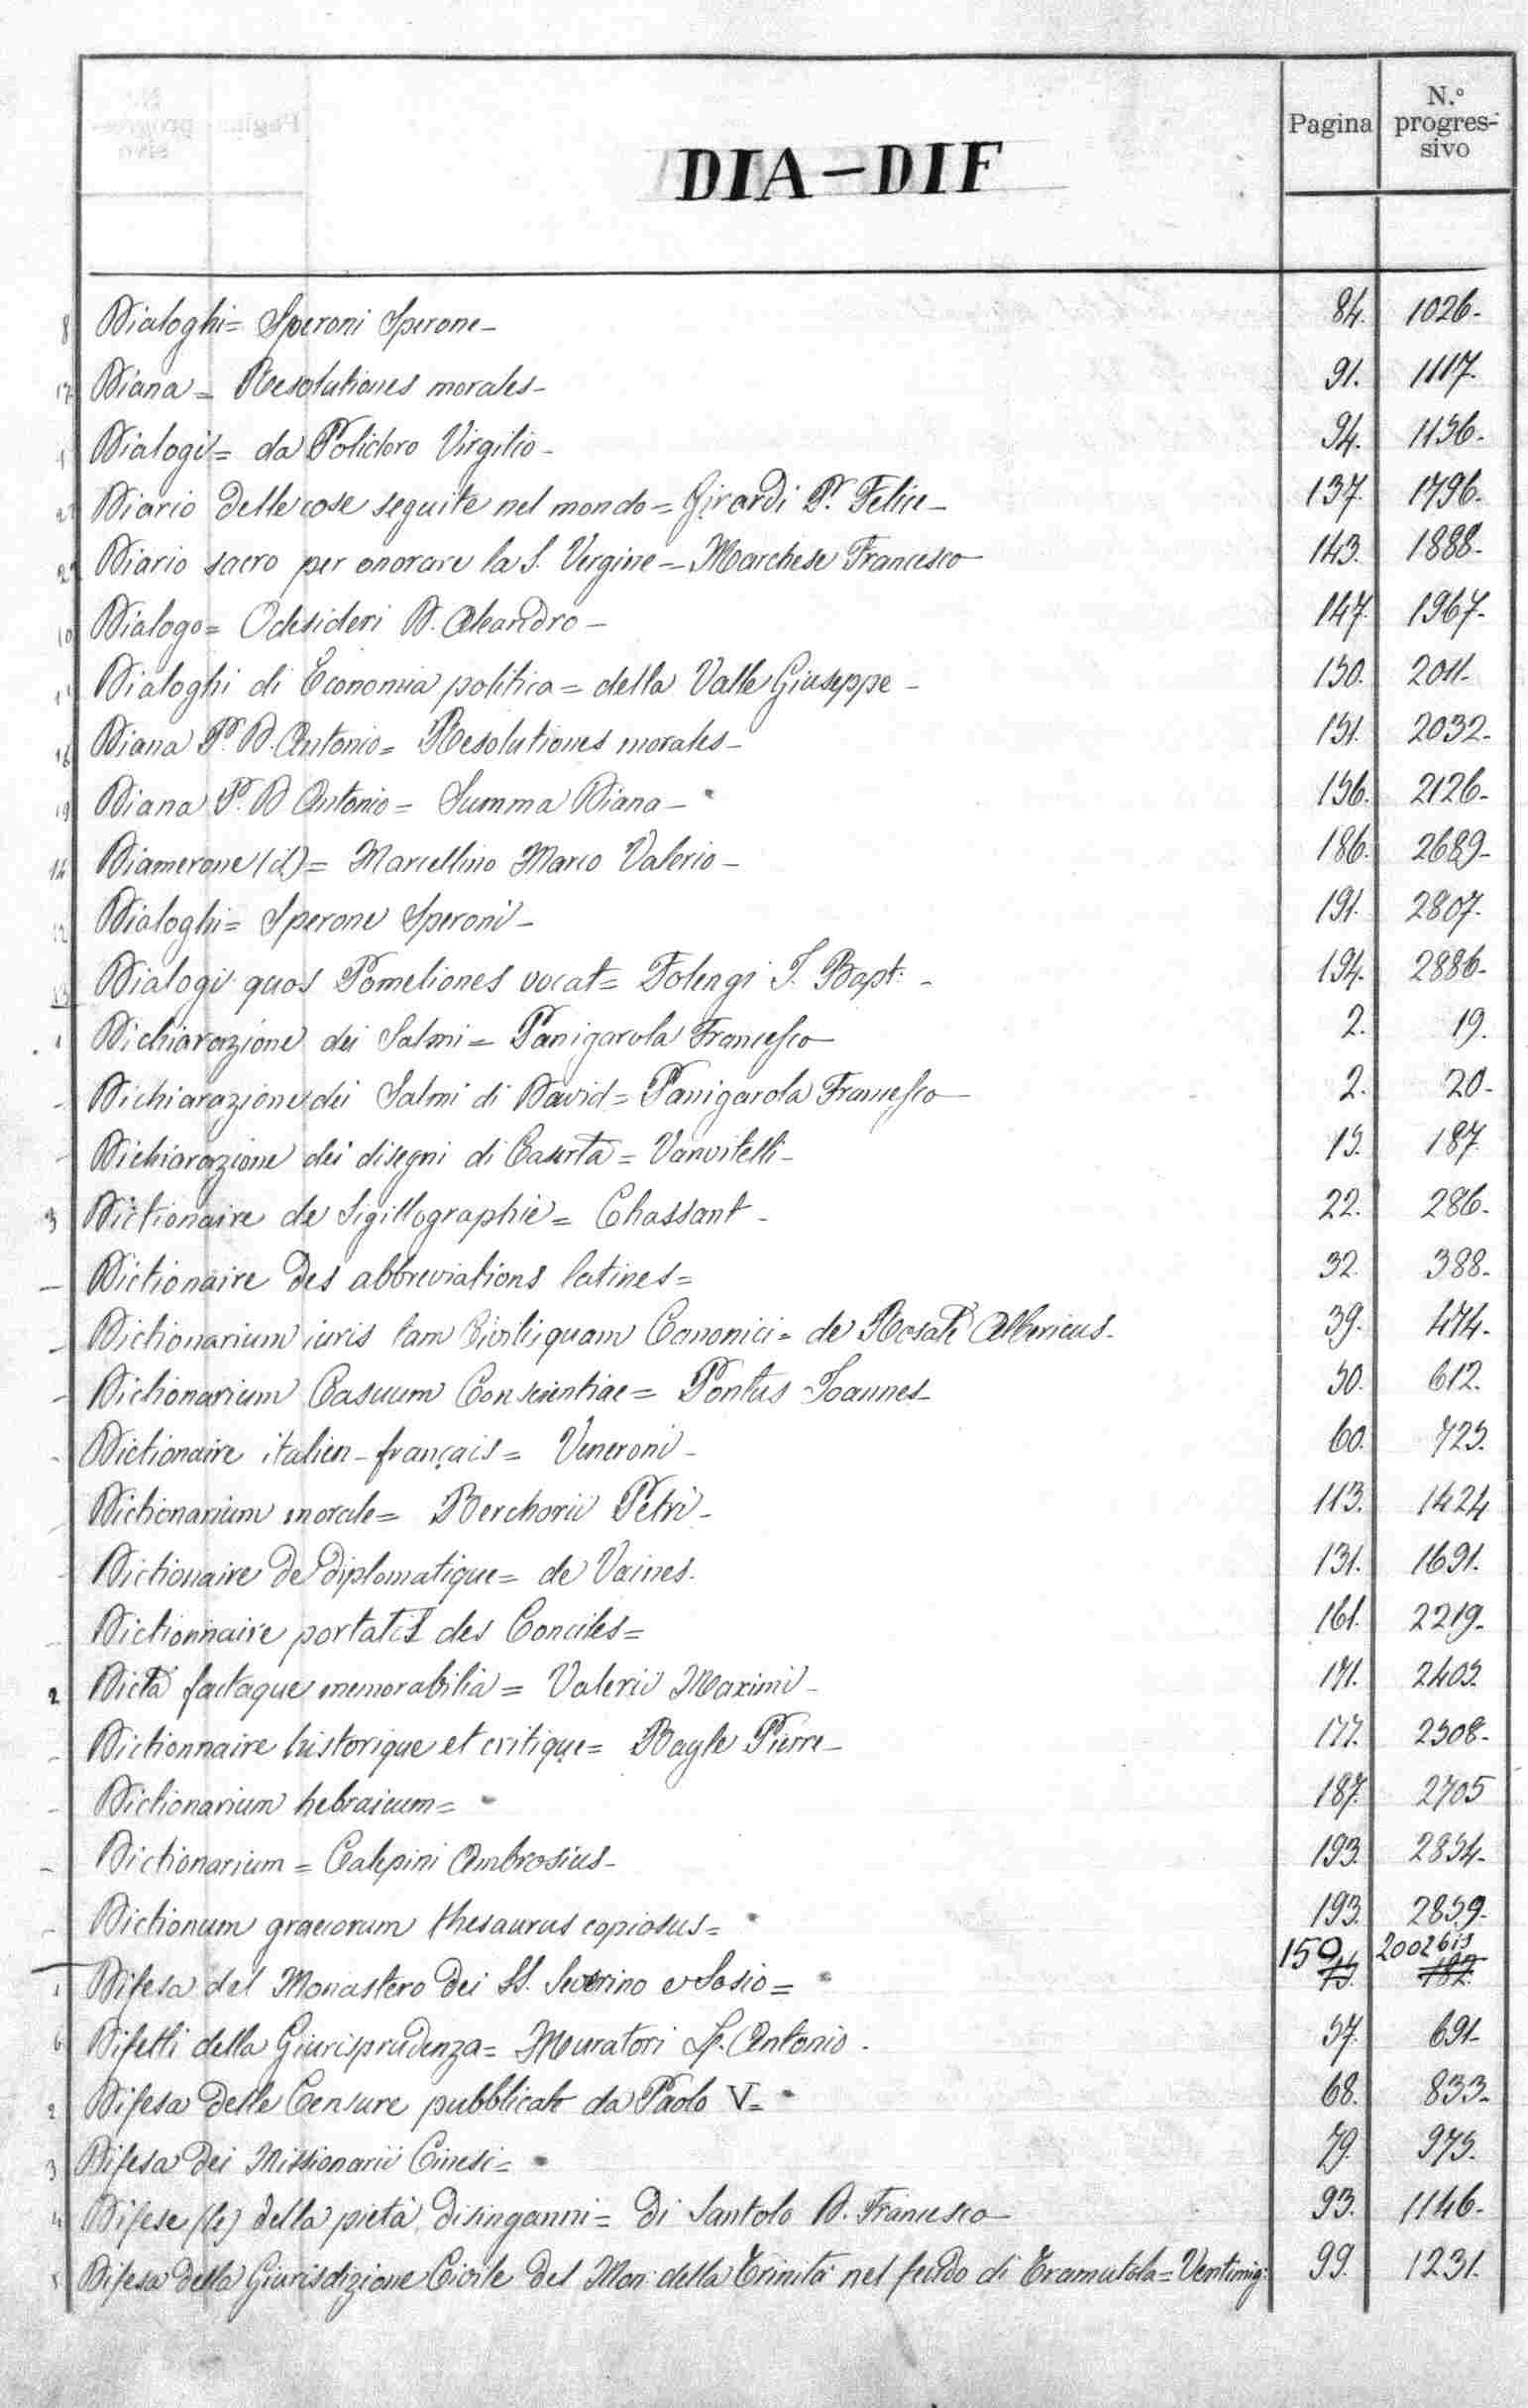 Pagina
N.° progres-sivo
DIA-DIF
8 Dialoghi= Speroni Sperone- 84. 1026-
17 Diana= Resolutiones morales- 91. 1117.
Dialogi= da Polidoro Virgilio- 94. 1156-
Diario delle cose seguite nel mondo= Girardi P. Felice- 137. 1796-
Diario sacro per onorare la S. Vergine= Marchese Francesco 143. 1888-
10 Dialogo= Odesideri D. Aleandro- 147 1967-
Dialoghi di Economia politica= della Valle Giuseppe- 150. 2011-
16 Diana P. D. Antonio= Resolutiones morales- 151. 2032-
19 Diana P. D Antonio= Summa Diana- 156. 2126-
14 Diamerone (il)= Marcellino Marco Valerio- 186. 2689-
12 Dialoghi= Sperone Speroni- 191. 2807.
13 Dialogi quos Pomeliones vocat= Folengi J. Bapt:- 194. 2886-
1 Dichiarazione dei Salmi= Panigarola Francesco 2. 19.
- Dichiarazione dei Salmi di David= Panigarola Francesco 2. 20-
- Dichiarazione dei disegni di Caserta= Vanvitelli- 15. 187
3 Dictionaire de Sigillographie= Chassant- 22. 286-
- Dictionaire des abbreviations latines= 32. 388-
- Dictionarium iuris tam Civilis quam Canonici= de Rosate Albericus- 39. 474-
- Dictionarium Casuum Conscientiae= Pontas Joannes- 50. 612.
- Dictionaire italien-français= Veneroni- 60. 725.
- Dictionarium morale= Berchorii Petri- 113. 1424
- Dictionaire de diplomatique= de Vaines. 131. 1691.
- Dictionnaire portatif des Conciles= 161. 2219-
2 Dicta factaque memorabilia= Valerii Maximi- 171. 2405.
- Dictionnaire historique et critique= Bayle Pierre- 177. 2508-
- Dictionarium hebraicum= 187. 2705
- Dictionarium= Calepini Ambrosius- 193. 2854-
- Dictionum graecorum thesaurus copiosus= 193. 2859-
1 Difesa del Monastero dei SS. Severino e Sosio= 150 2002 bis
6 Difetti della Giurisprudenza= Muratori L. Antonio. 57. 691-
2 Difesa delle Censure pubblicate da Paolo V= 68. 833-
3 Difesa dei Missionarii Cinesi= 79. 975.
4 Difese (le) della pietà disinganni= di Santolo D. Francesco 93. 1146-
5 Difesa della Giurisdizione Civile del Mon: della Trinità nel feudo di Tramutola= Ventimig: 99. 1231.